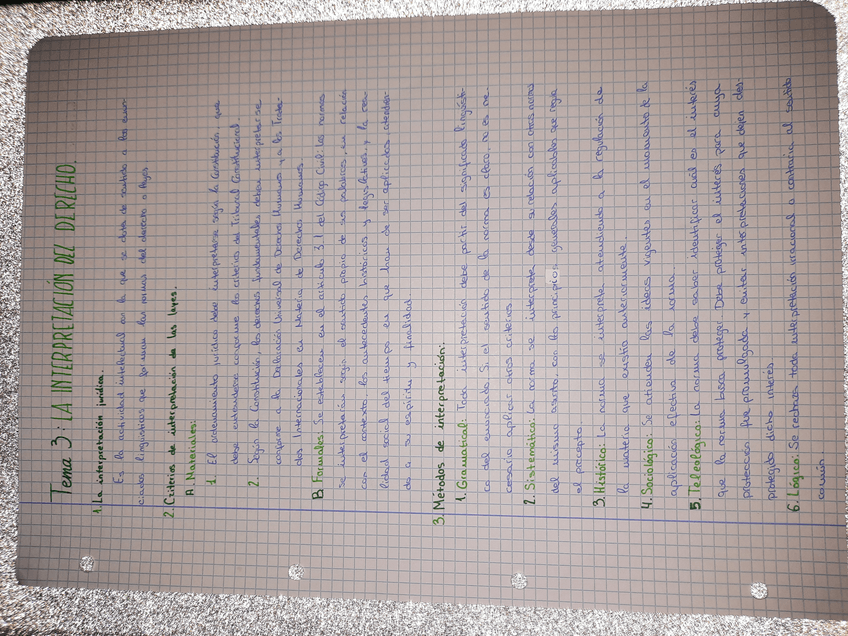 Tema 3: LA INTERPRETACIÓN DEL DERECHO.
1. La interpretación jurídica.
Es la actividad intelectual en la que se dota de sentido a los enun-
ciados lingüísticos que forman las normas del derecho o leyes.
2. Criterios de interpretación de las leyes.
A. Materiales:
1. El ordenamiento jurídico debe interpretarse según la Constitución, que
debe entenderse conforme los criterios del Tribunal Constitucional.
2. Según la Constitución, los derechos fundamentales deben interpretarse
conforme a la Declaración Universal de Derechos Humanos y a los Trata-
dos Internacionales en Materia de Derechos Humanos.
B. Formales: Se establecen en el artículo 3.1 del Código Civil: Las normas
se interpretarán según el sentido propio de sus palabras, en relación
con el contexto, los antecedentes históricos y legislativos, y la rea-
lidad social del tiempo en que han de ser aplicadas, atendien-
do a su espíritu y finalidad.
3. Métodos de interpretación:
1. Gramatical: Toda interpretación debe partir del significado lingüísti-
co del enunciado. Si el sentido de la norma es claro, no es ne-
cesario aplicar otros criterios.
2. Sistemático: La norma se interpreta desde su relación con otras normas
del mismo asunto, con los principios generales aplicables que rigen
el precepto.
3. Histórico: La norma se interpreta atendiendo a la regulación de
la materia que existía anteriormente.
4. Sociológico: Se atienden las ideas vigentes en el momento de la
aplicación efectiva de la norma.
5. Teleológico: La norma debe saber identificar cuál es el interés
que la norma busca proteger. Debe proteger el interés para cuya
protección fue promulgada y evitar interpretaciones que dejen des-
protegido dicho interés.
6. Lógico: Se rechaza toda interpretación irracional o contraria al sentido
común.